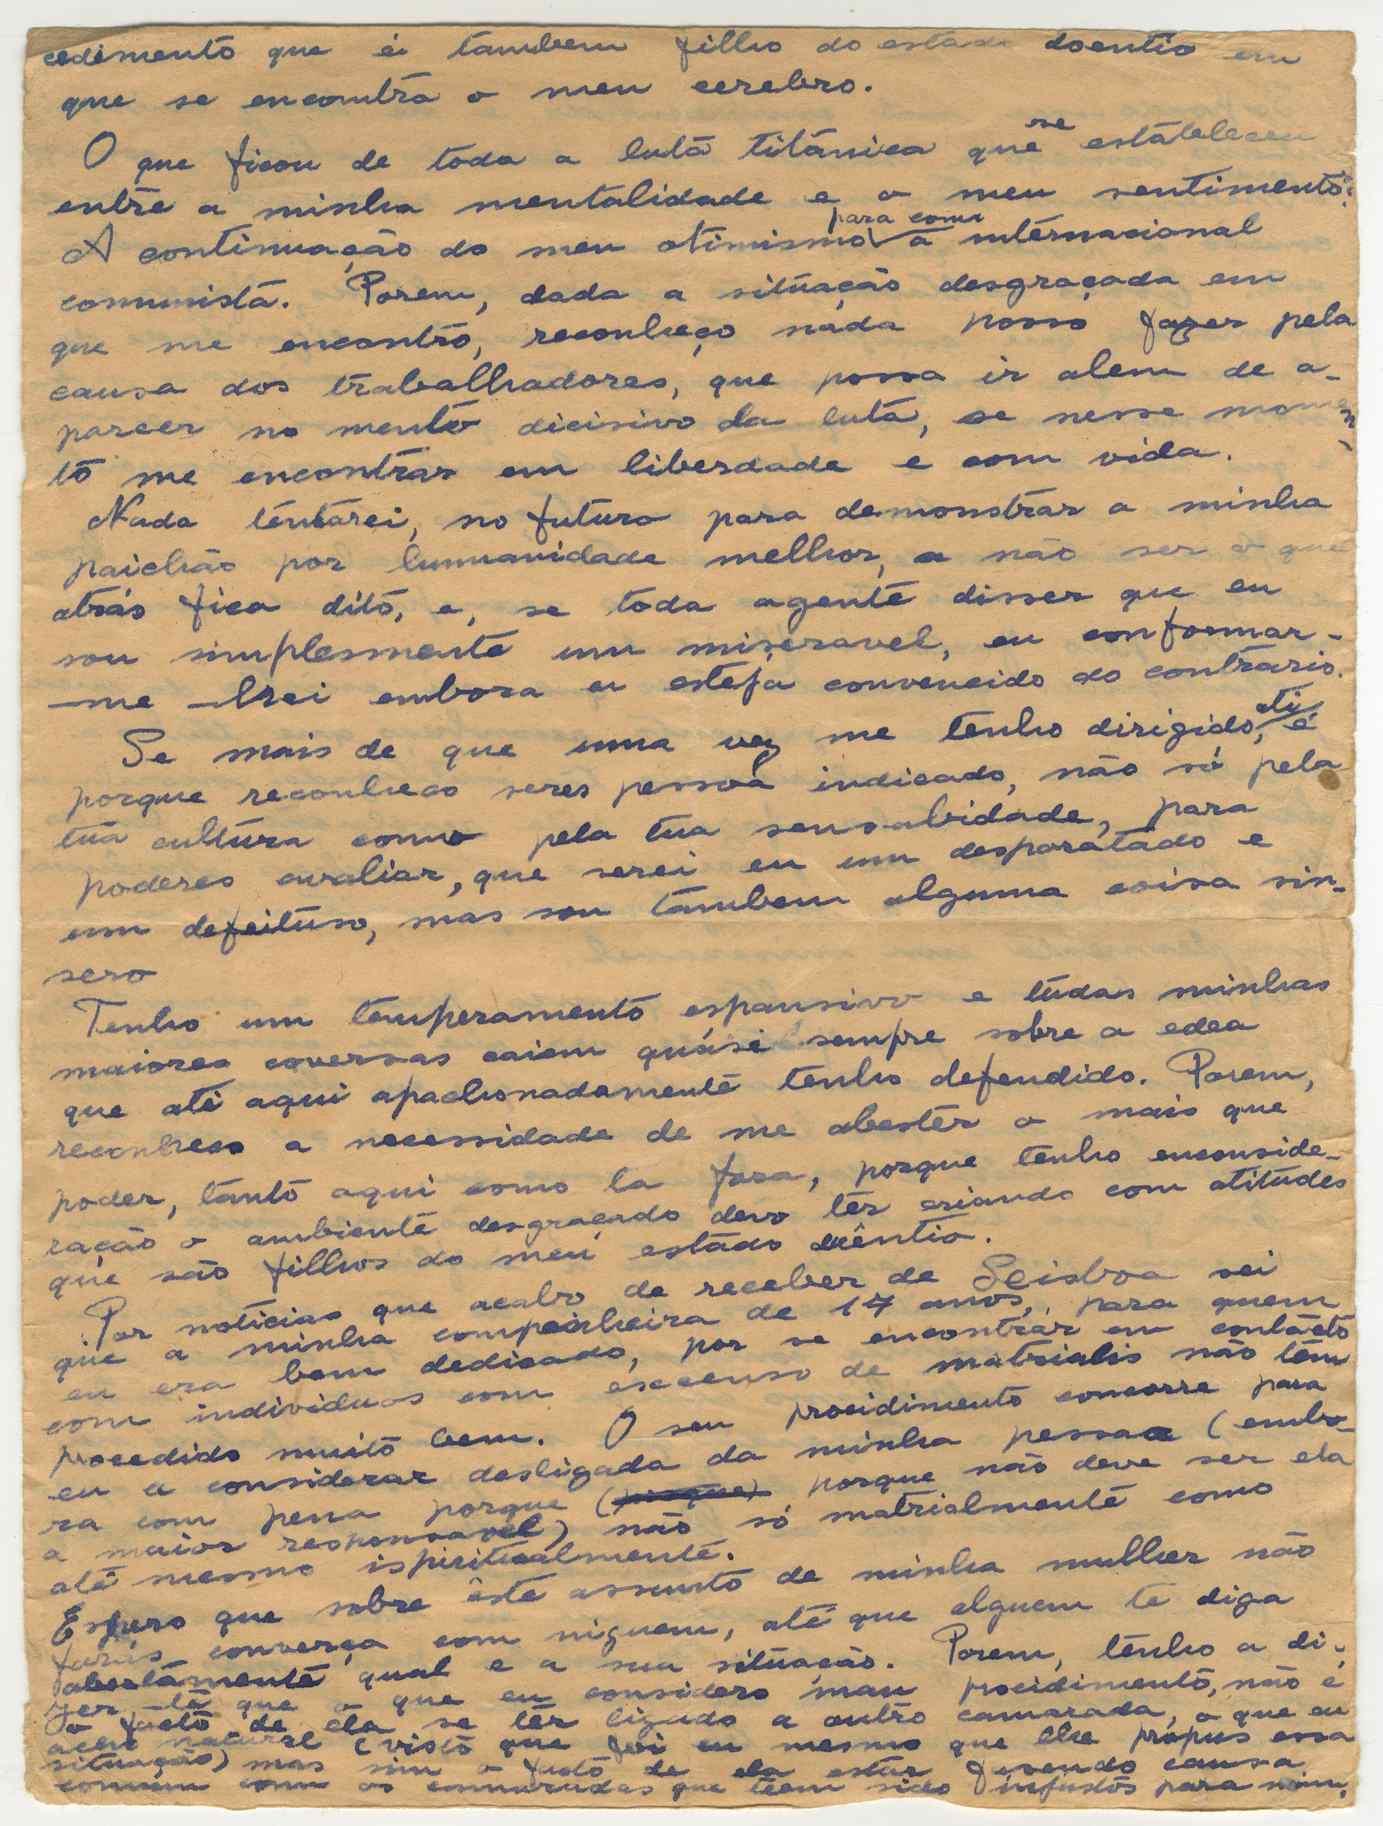 cedimento que é tambem filho do estado doentio em
que se encontra o meu cerebro.
O que ficou de toda a luta titânica que se estabeleceu
entre a minha mentalidade e o meu sentimento?
A continuação do meu otimismo para com a internacional
comunista. Porem, dada a situação desgraçada em
que me encontro, reconheço nada posso fazer pela
causa dos trabalhadores, que possa ir alem de a-
parcer no mento dicisivo da luta, se nesse momen-
to me encontrar em liberdade e com vida.
Nada tentarei, no futuro para demonstrar a minha
paichão por humanidade melhor, a não ser o que
atrás fica dito, e, se toda agente disser que eu
sou simplesmente um miseravel, eu conformar-
-me-hei embora eu esteja convencido do contrario.
Se mais de que uma vez me tenho dirigido, ati é
porque reconheco seres pessoa indicado, não só pela
tua cultura como pela tua sensabidade, para
poderes avaliar, que serei eu um desparatado e
um defeituso, mas sou tambem alguma coisa sin-
sero
Tenho um temperamento espansivo e tudas minhas
maiores coversas caiem quási sempre sobre a edea
que até aqui apachonadamente tenho defendido. Porem,
reconheco a necessidade de me abester o mais que
poder, tanto aqui como la fora, porque tenho enconside-
ração o ambiente desgraçado devo ter criando com atitudes
que são filhos do meu estado duêntio.
Por noticias que acabo de receber de Leisboa sei
que a minha companheira de 17 anos, para quem
eu era bem dedicado, por se encontrar em contacto
com individuos com escenso de matrialis não tem
procedido muito bem. O seu procidimento concorre para
eu a considerar desligada da minha pessoa (embo-
ra com pena porque porque não deve ser ela
a maior responsavel) não só matrialmente como
até mesmo ispiritualmente.
Espero que sobre êste assunto de minha mulher não
farás converça com niguem, até que alguem te diga
abertamente qual e a sua situação. Porem, tenho a di-
zer-te que o que eu considero mau procidimento, não é
o facto de ela se ter ligado a outro camarada, o que eu
acho natural (visto que foi eu mesmo que lhe propus essa
situação) mas sim o facto de ela estar fazendo causa
comum com os camaradas que teem sido injustos para mim.